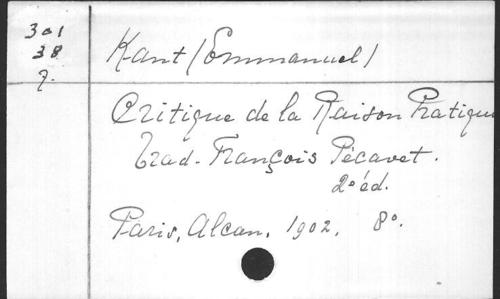 301
38
7.
Kant (Emmanuel)
Critique de la Raison Pratique
Trad. François Pécavet.
2º éd.
Paris, Alcan. 1902. 8º.